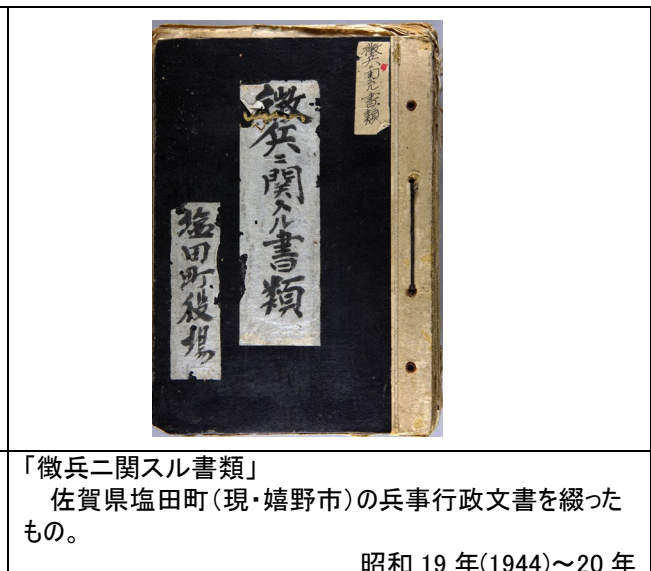 徴兵ニ関スル書類
徴兵ニ関スル書類
塩田町役場
「徴兵ニ関スル書類」
佐賀県塩田町（現・嬉野市）の兵事行政文書を綴った
もの。
昭和 19 年(1944)～20 年